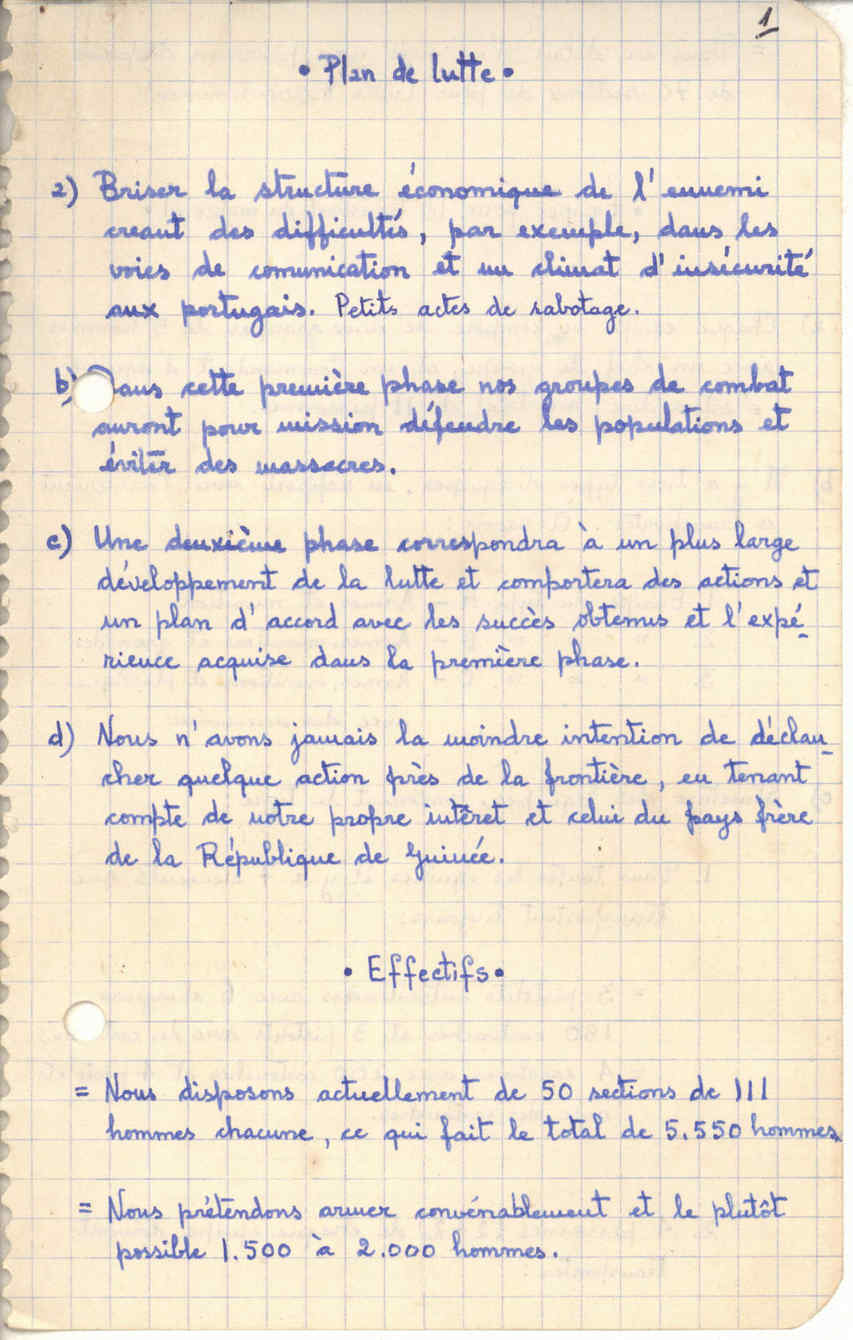 1
• Plan de lutte •
a) Briser la structure économique de l'ennemi
creant des difficultés, par exemple, dans les
voies de comunication et un climat d'insécurité
aux portugais. Petits actes de sabotage.
b) Dans cette première phase nos groupes de combat
auront pour mission défendre les populations et
éviter des massacres.
c) Une deuxième phase correspondra à un plus large
développement de la lutte et comportera des actions et
un plan d'accord avec les succès obtenus et l'expé-
rience acquise dans la première phase.
d) Nous n'avons jamais la moindre intention de déclan-
cher quelque action près de la frontière, en tenant
compte de notre propre intêret et celui du pays frère
de la République de Guinée.
• Effectifs •
= Nous disposons actuellement de 50 sections de 111
hommes chacune, ce qui fait le total de 5.550 hommes.
= Nous prétendons armer convénablement et le plutôt
possible 1.500 à 2.000 hommes.